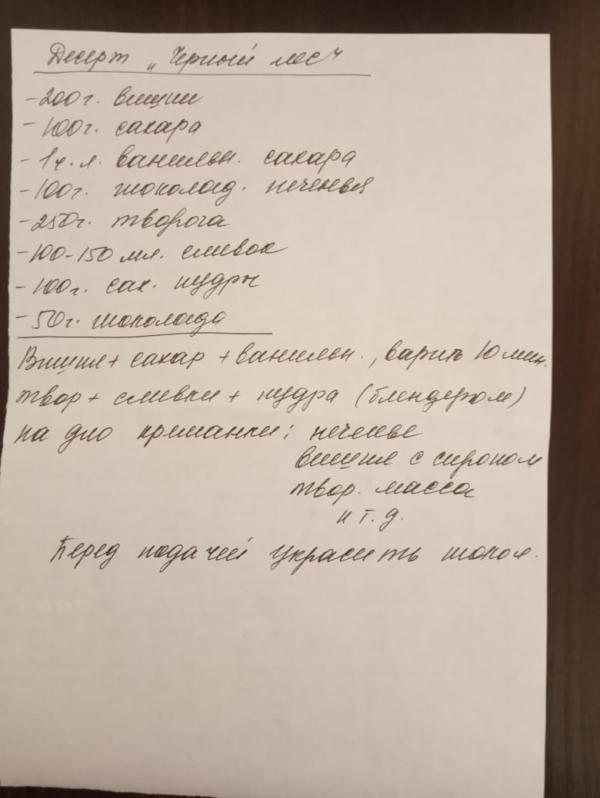 Десерт „Черный лес"
-200г. вишни
-100г. сахара
-1ч.л. ванильн. сахара
-100г. шоколад. печенья
-250г. творога
-100-150 мл. сливок
-100г. сах. пудры
-50г. шоколада
Вишня + сахар + ванильн., варить 10 мин.
твор + сливки + пудра (блендером)
на дно креманки: печенье
вишня с сиропом
твор. масса
и т.д.
Перед подачей украсить шокол.